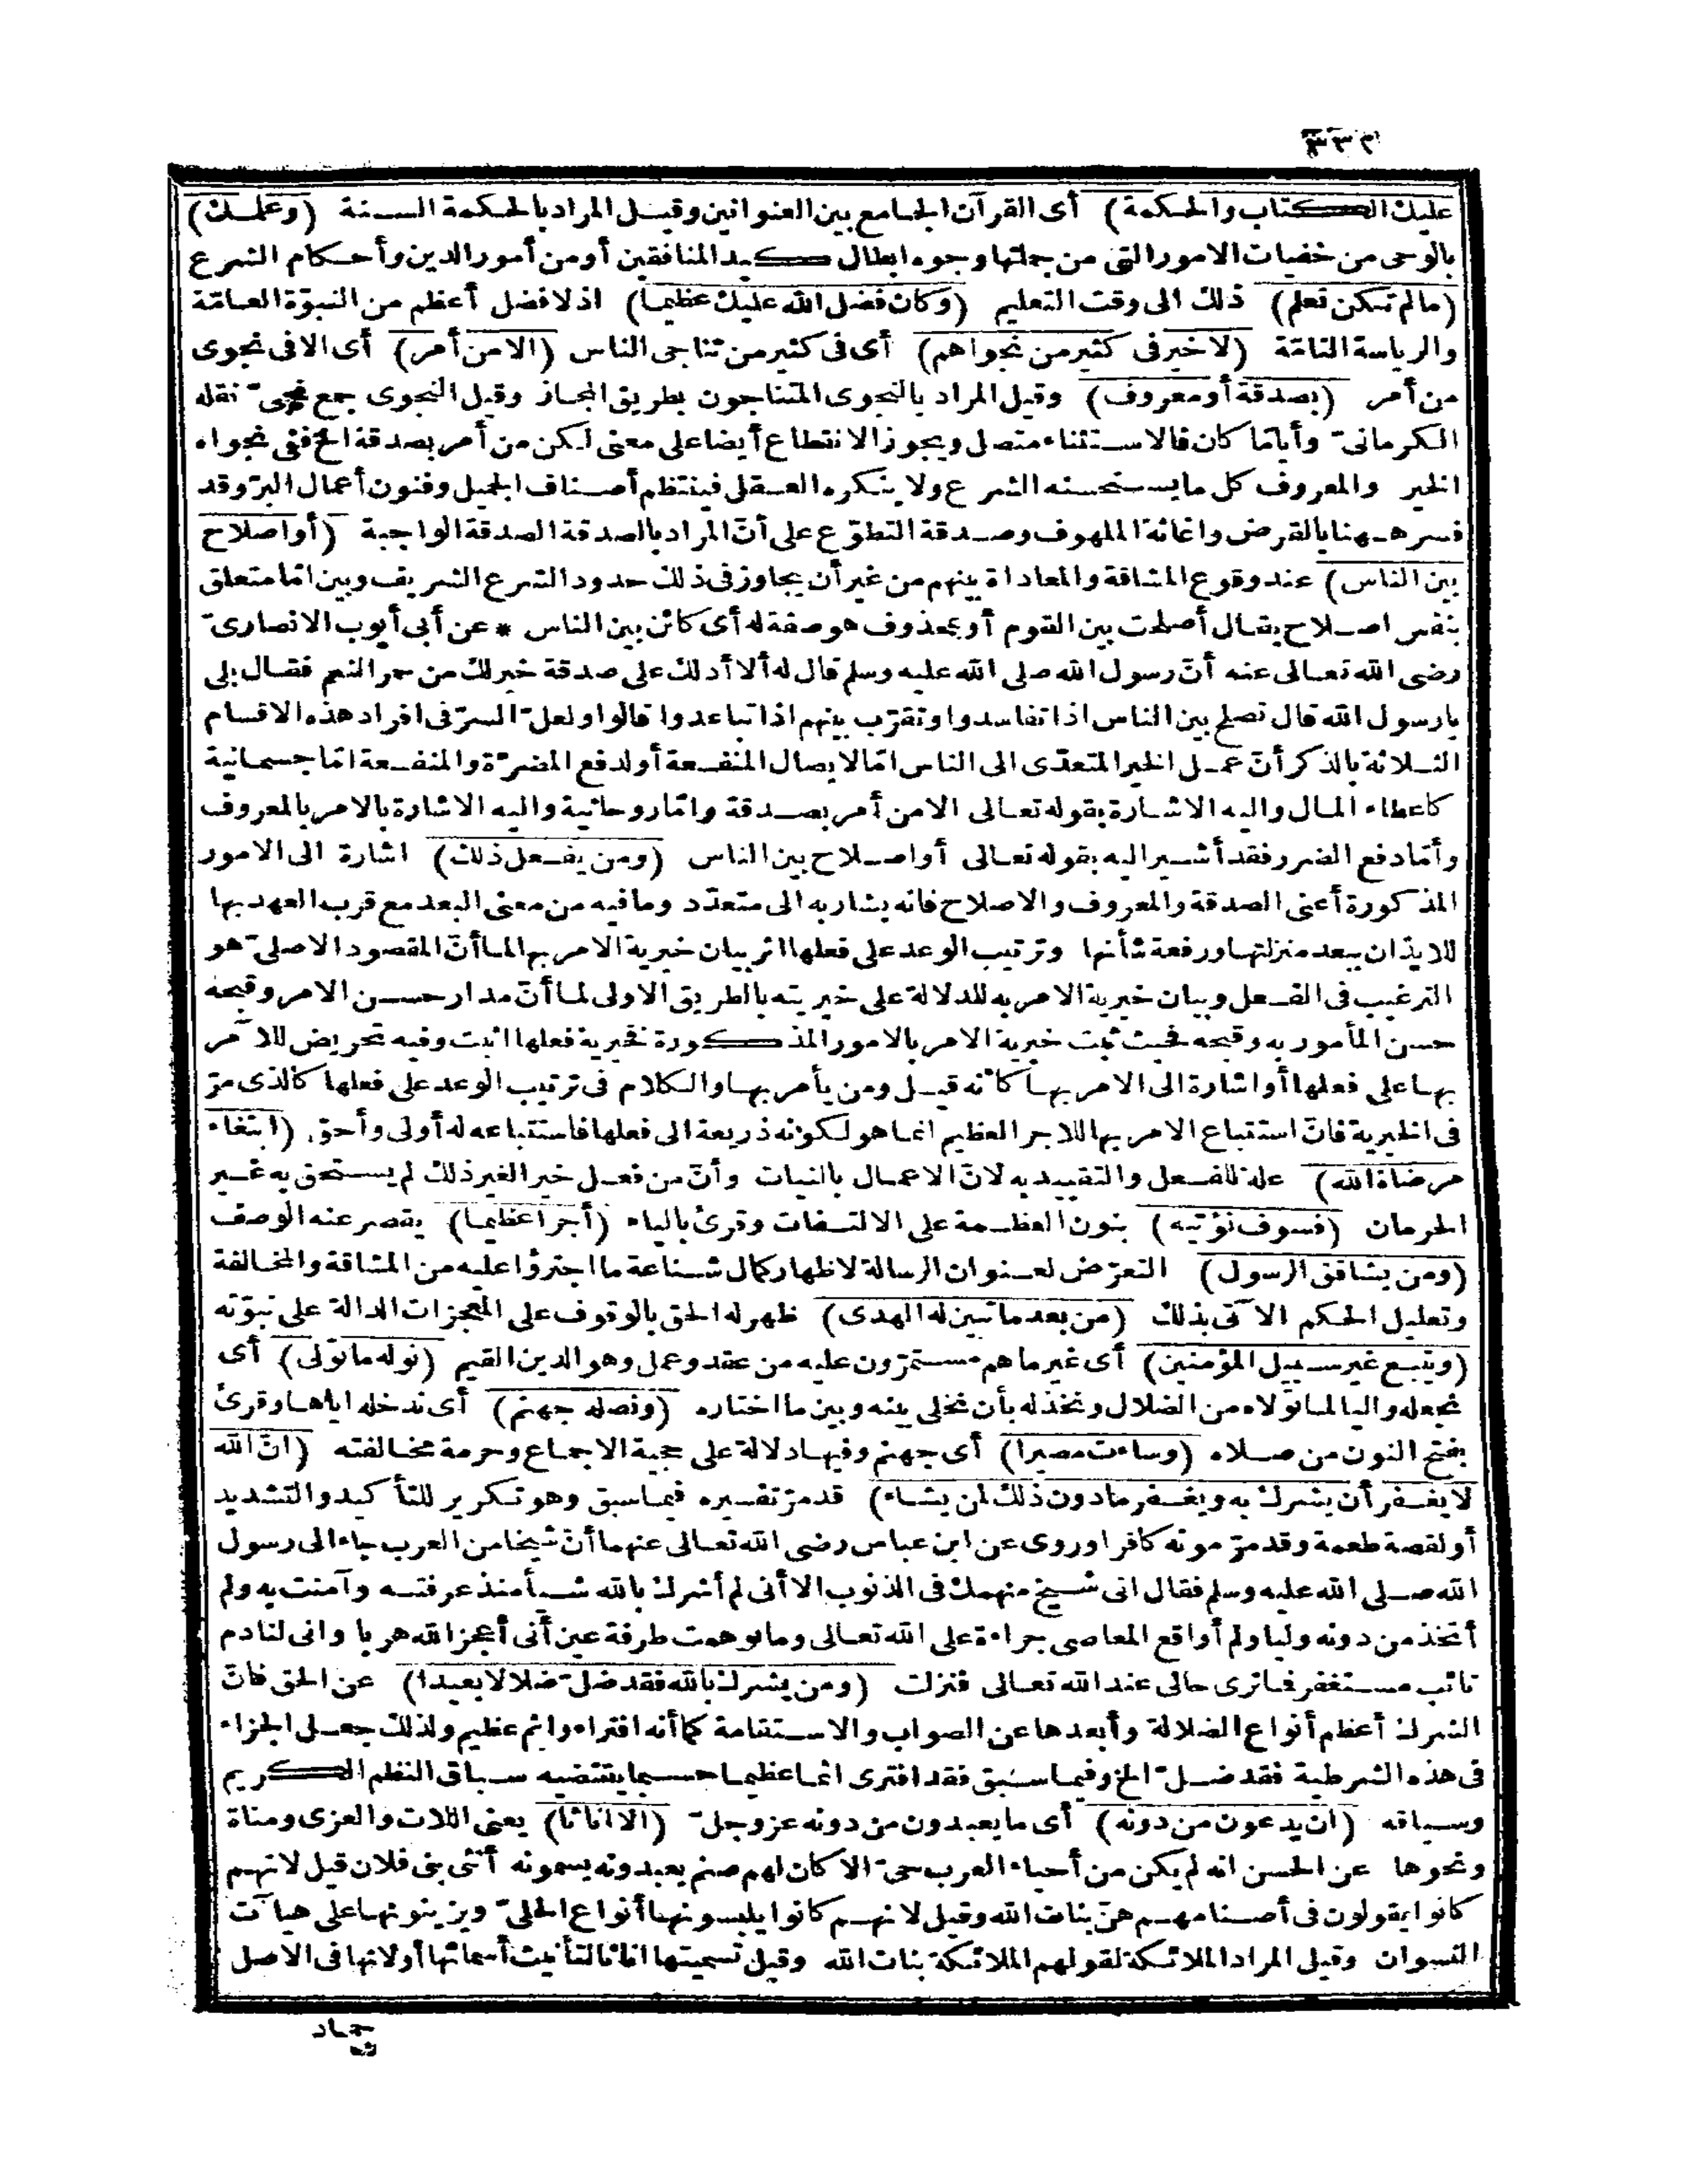 ٣٣٢
عليك الكتاب والحكمة) أى القرآن الجامع بين العنوانين وقيل المراد بالحكمة السنة (وعلمك)
بالوحى من خفيات الامور التى من جملتها وجوه ابطال كيد المنافقين أو من أمور الدين وأحكام الشرع
(مالم تكن تعلم) ذلك الى وقت التعليم (وكان فضل الله عليك عظيما) اذ لا فضل أعظم من النبوّة العامّة
والرياسة التامّة (لا خير فى كثير من نجواهم) أى فى كثير من تناجى الناس (الا من أمر) أى الا فى نجوى
من أمر (بصدقة أو معروف) وقيل المراد بالنجوى المتناجون بطريق المجاز وقيل النجوى جمع نجىّ نقله
الكرمانىّ وأيامّا كان فالاستثناء متصل ويجوز الانقطاع أيضا على معنى لكن من أمر بصدقة الخ ففى نجواه
الخير والمعروف كل ما يستحسنه الشرع ولا ينكره العقل فينتظم أصناف الجميل وفنون أعمال البرّ وقد
فسر ههنا بالقرض واغاثة الملهوف وصدقة التطوّع على أنّ المراد بالصدقة الصدقة الواجبة (أو اصلاح
بين الناس) عند وقوع المشاقة والمعاداة بينهم من غير أن يجاوز فى ذلك حدود الشرع الشريف وبين امّا متعلق
بنفس اصلاح يقال أصلحت بين القوم أو بمحذوف هو صفة له أى كائن بين الناس * عن أبى أيوب الانصارىّ
رضى الله تعالى عنه أنّ رسول الله صلى الله عليه وسلم قال له ألا أدلك على صدقة خير لك من حمر النعم فقال بلى
يا رسول الله قال تصلح بين الناس اذا تفاسدوا وتقرّب بينهم اذا تباعدوا قالوا ولعلّ السرّ فى افراد هذه الاقسام
الثلاثة بالذكر أنّ عمل الخير المتعدّى الى الناس امّا لايصال المنفعة أو لدفع المضرّة والمنفعة امّا جسمانية
كاعطاء المال واليه الاشارة بقوله تعالى الا من أمر بصدقة وامّا روحانية واليه الاشارة بالامر بالمعروف
وأمّا دفع الضرر فقد أشير اليه بقوله تعالى أو اصلاح بين الناس (ومن يفعل ذلك) اشارة الى الامور
المذكورة أعنى الصدقة والمعروف والاصلاح فانه يشار به الى متعدّد وما فيه من معنى البعد مع قرب العهد بها
للايذان ببعد منزلتها ورفعة شأنها وترتيب الوعد على فعلها اثر بيان خيرية الامر بها لما أنّ المقصود الاصلىّ هو
الترغيب فى الفعل وبيان خيرية الامر به للدلالة على خيريته بالطريق الاولى لما أنّ مدار حسن الامر وقبحه
حسن المأمور به وقبحه فحيث ثبت خيرية الامر بالامور المذكورة فخيرية فعلها اثبت وفيه تحريض للآمر
بها على فعلها أو اشارة الى الامر بها كأنه قيل ومن يأمر بها والكلام فى ترتيب الوعد على فعلها كالذى مرّ
فى الخيرية فانّ استتباع الامر بها للاجر العظيم انما هو لكونه ذريعة الى فعلها فاستتباعه له أولى وأحق (ابتغاء
مرضاة الله) علة للفعل والتقييد به لانّ الاعمال بالنيات وأنّ من فعل خير الغير ذلك لم يستحق به غير
الحرمان (فسوف نؤتيه) بنون العظمة على الالتفات وقرئ بالياء (أجرا عظيما) يقصر عنه الوصف
(ومن يشاقق الرسول) التعرّض لعنوان الرسالة لاظهار كمال شناعة ما اجترؤا عليه من المشاقة والمخالفة
وتعليل الحكم الآتى بذلك (من بعد ما تبين له الهدى) ظهر له الحق بالوقوف على المعجزات الدالة على نبوّته
(ويتبع غير سبيل المؤمنين) أى غير ما هم مستمرّون عليه من عقد وعمل وهو الدين القيم (نوله ما تولى) أى
نجعله واليا لما تولاه من الضلال ونخذله بأن نخلى بينه وبين ما اختاره (ونصله جهنم) أى ندخله اياها وقرئ
بفتح النون من صلاه (وساءت مصيرا) أى جهنم وفيها دلالة على حجية الاجماع وحرمة مخالفته (انّ الله
لا يغفر أن يشرك به ويغفر ما دون ذلك لمن يشاء) قد مرّ تفسيره فيما سبق وهو تكرير للتأكيد والتشديد
أو لقصة طعمة وقد مرّ موته كافرا وروى عن ابن عباس رضى الله تعالى عنهما أنّ شيخا من العرب جاء الى رسول
الله صلى الله عليه وسلم فقال انى شيخ منهمك فى الذنوب الا أنى لم أشرك بالله شيأ منذ عرفته وآمنت به ولم
أتخذ من دونه وليا ولم أواقع المعاصى جراءة على الله تعالى وما توهمت طرفة عين أنى أعجز الله هربا وانى لنادم
تائب مستغفر فما ترى حالى عند الله تعالى فنزلت (ومن يشرك بالله فقد ضلّ ضلالا بعيدا) عن الحق فانّ
الشرك أعظم أنواع الضلالة وأبعدها عن الصواب والاستقامة كما أنه افتراء واثم عظيم ولذلك جعل الجزاء
فى هذه الشرطية فقد ضلّ الخ وفيما سبق فقد افترى اثما عظيما حسبما يقتضيه سباق النظم الكريم
وسياقه (ان يدعون من دونه) أى ما يعبدون من دونه عز وجلّ (الا اناثا) يعنى اللات والعزى ومناة
ونحوها عن الحسن انه لم يكن من أحياء العرب حىّ الا كان لهم صنم يعبدونه يسمونه أنثى بنى فلان قيل لانهم
كانوا يقولون فى أصنامهم هنّ بنات الله وقيل لانهم كانوا يلبسونها أنواع الحلىّ ويزينونها على هيآت
النسوان وقيل المراد الملائكة لقولهم الملائكة بنات الله وقيل تسميتها اناثا لتأنيث أسمائها أو لانها فى الاصل
جماد